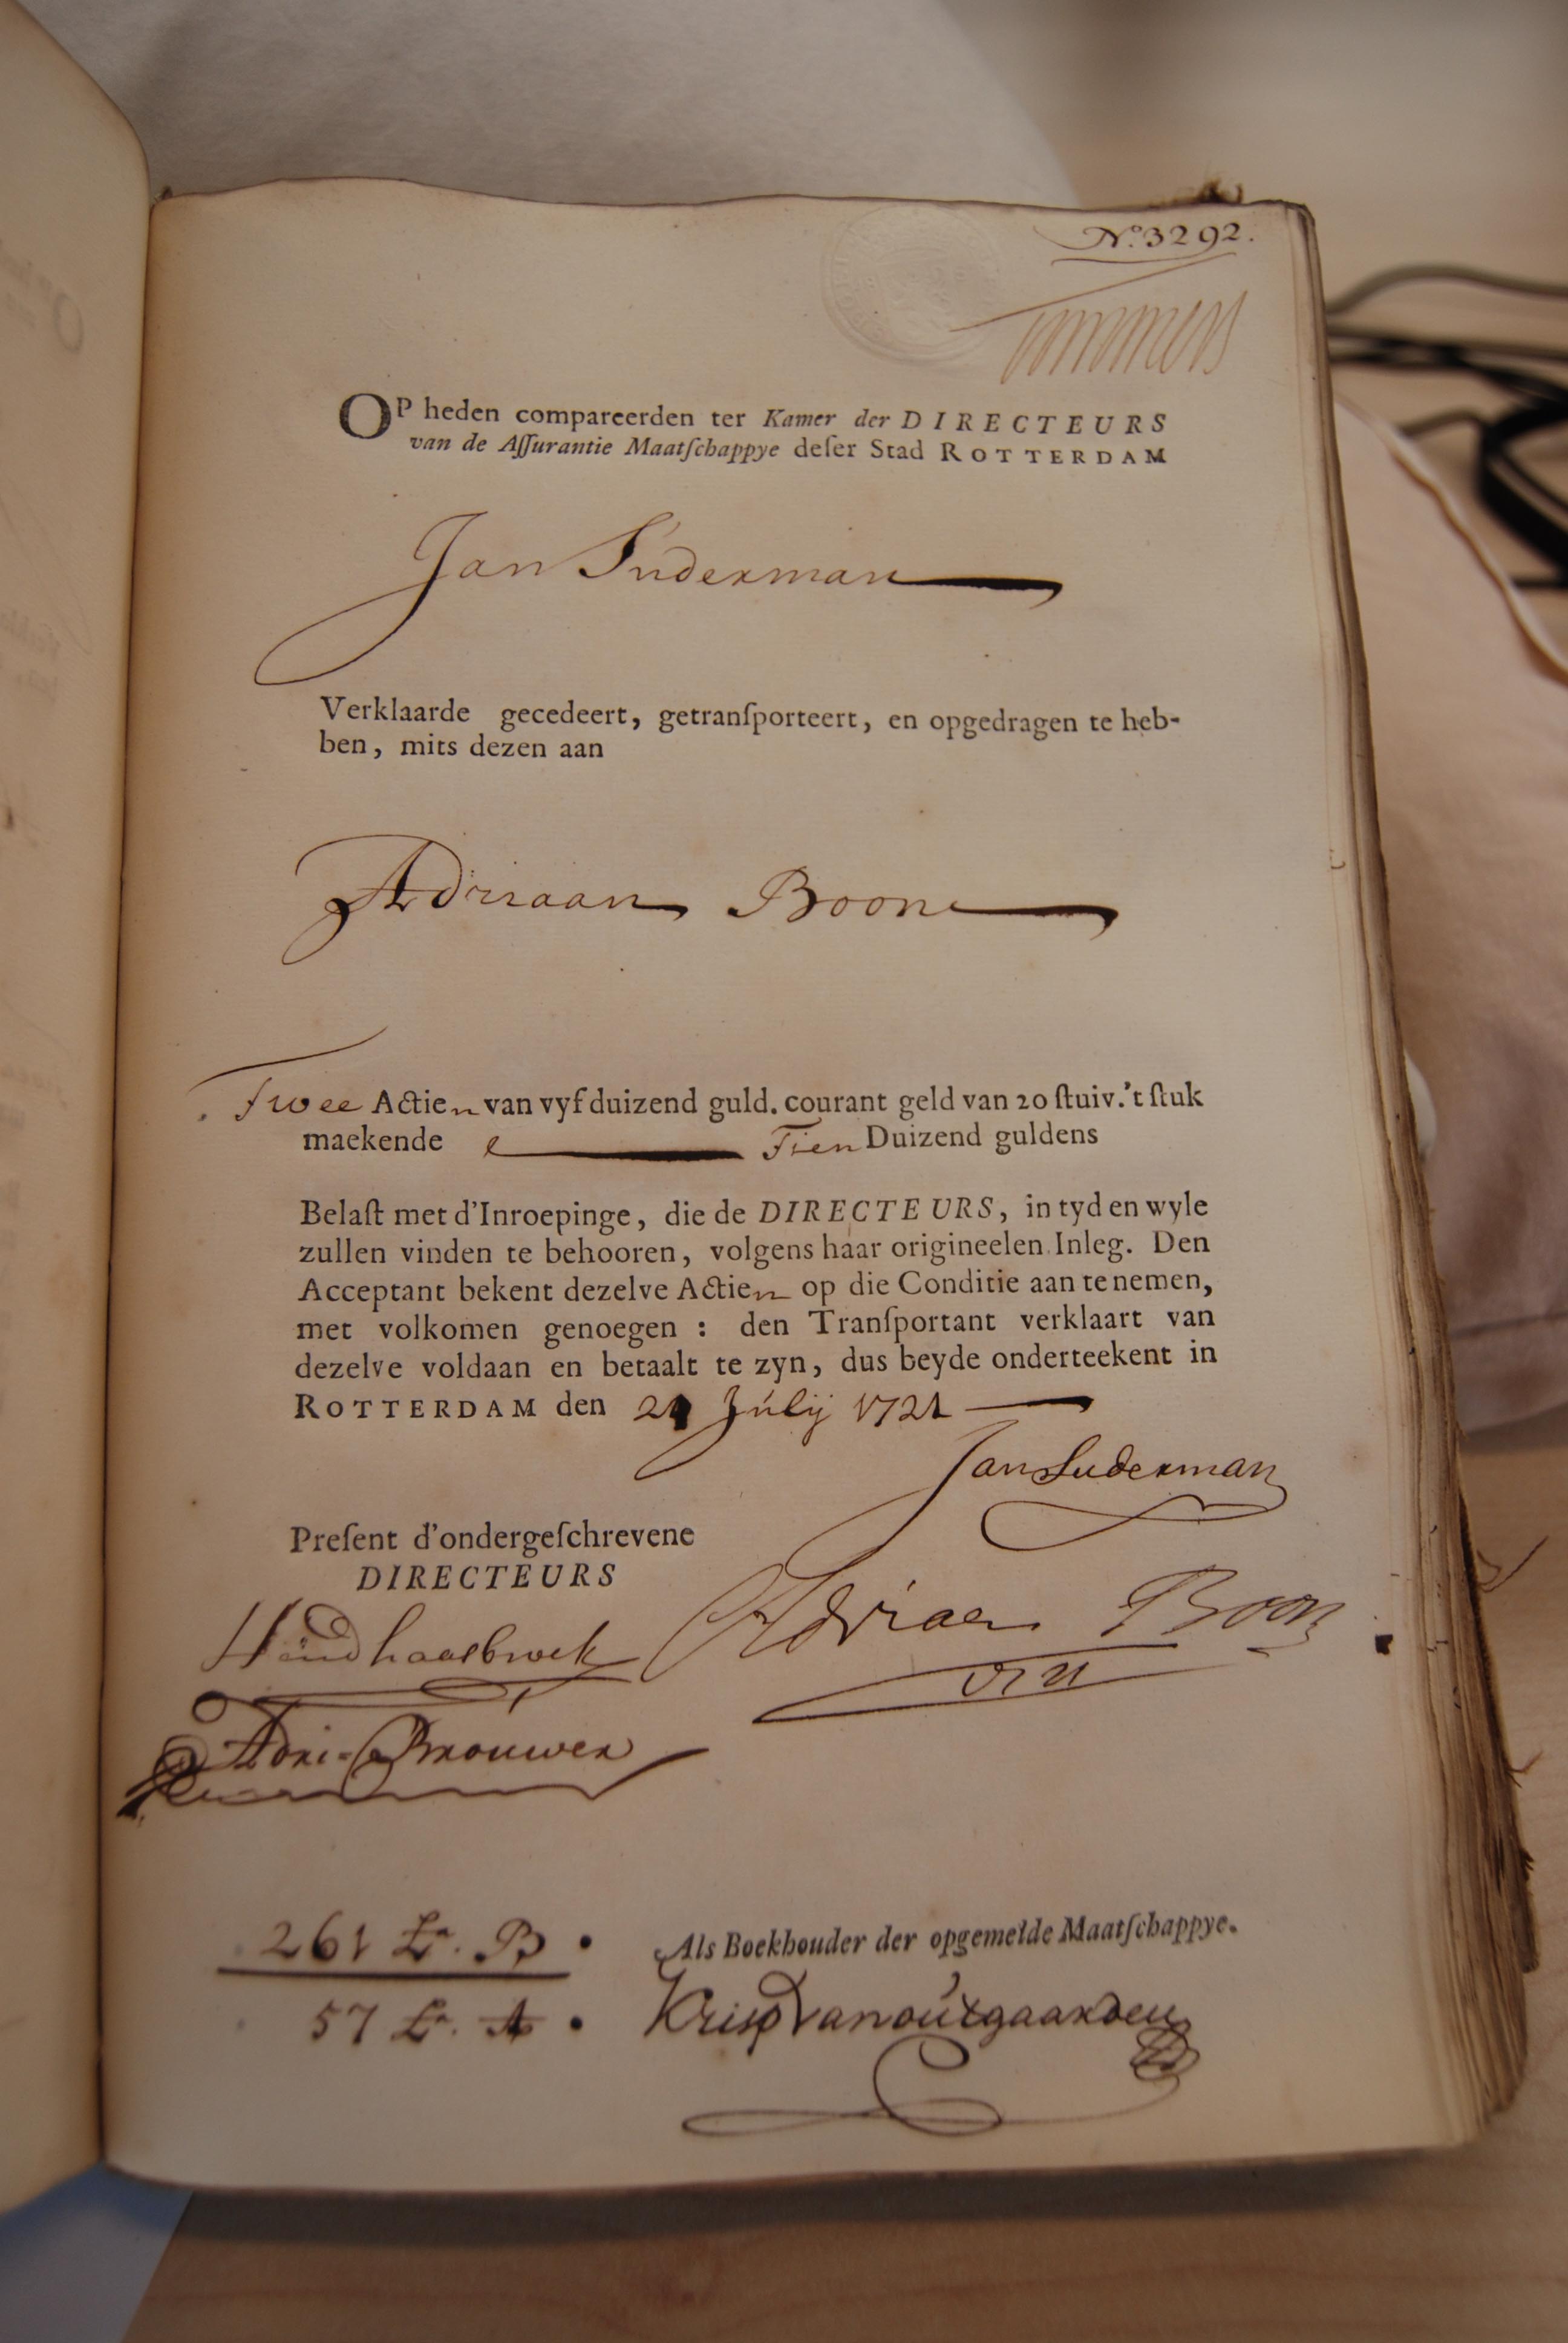 N.o 3292.
Timmers
OP heden compareerden ter Kamer der DIRECTEURS
van de Aſſurantie Maatſchappye deſer Stad ROTTERDAM
Jan Suderman
Verklaarde gecedeert, getranſporteert, en opgedragen te heb-
ben, mits dezen aan
Adriaan Boone
Twee Actien van vyf duizend guld. courant geld van 20 ſtuiv. 't ſtuk
maekende Tien Duizend guldens
Belaſt met d'Inroepinge, die de DIRECTEURS, in tyd en wyle
zullen vinden te behooren, volgens haar origineelen Inleg. Den
Acceptant bekent dezelve Actien op die Conditie aan te nemen,
met volkomen genoegen : den Tranſportant verklaart van
dezelve voldaan en betaalt te zyn, dus beyde onderteekent in
ROTTERDAM den Julij 1721
Jan Suderman
Preſent d'ondergeſchrevene
DIRECTEURS
Adriaen Boon
Adri= Brouwer
261 Lr. B. Als Boekhouder der opgemelde Maatſchappye.
57 Lr. A.